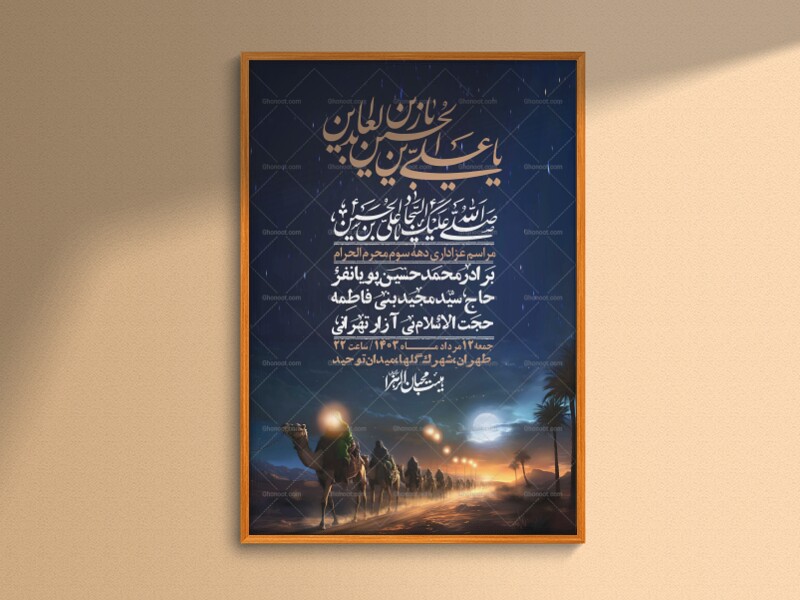 یا علی بن الحسین یا زین العابدین
صلی الله علیک ایها السجاد یا علی بن الحسین
مراسم عزاداری دهه سوم محرم الحرام
برادر محمدحسین پویانفر
حاج سید مجید بنی فاطمه
حجت الاسلام بی آزار تهرانی
جمعه ۱۲ مرداد مـــاه ۱۴۰۳ / ساعت ۲۲
طهران، شهرک گلها، میدان توحید
هیئت محبان الزهرا
Ghonoot.com